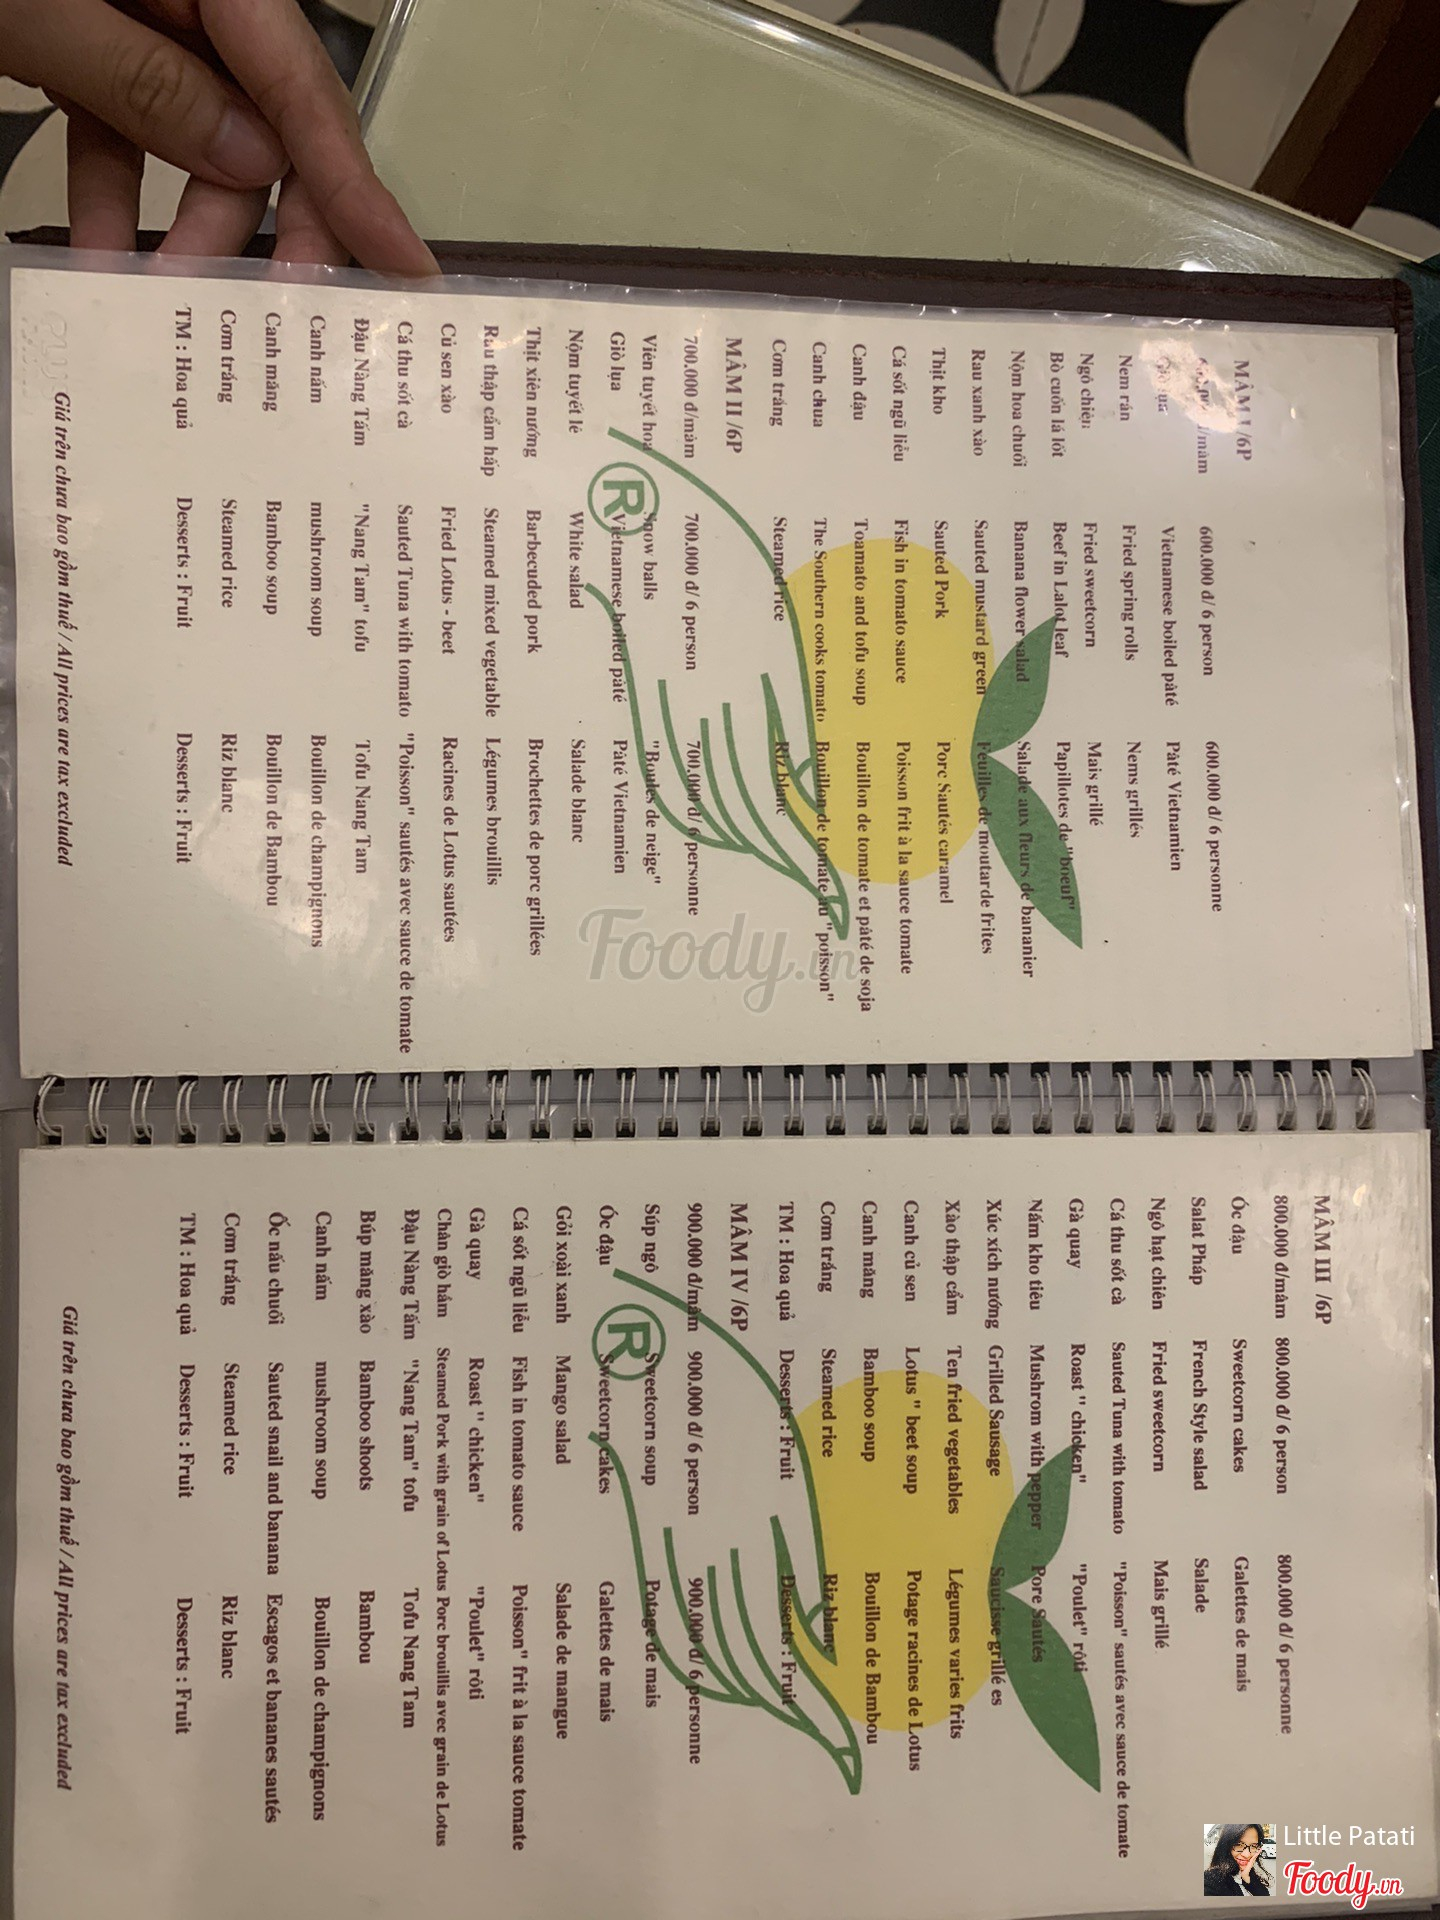 MÂM I /6P
600.000 đ/ 6 person 600.000 đ/ 6 personne
Vietnamese boiled pâté Pâté Vietnamien
Nem rán Fried spring rolls Nems grillés
Ngô chiên Fried sweetcorn Mais grillé
Bò cuốn lá lốt Beef in Lalot leaf Papillotes de "boeuf"
Nộm hoa chuối Banana flower salad Salade aux fleurs de bananier
Rau xanh xào Sauted mustard green Feuilles de moutarde frites
Thịt kho Sauted Pork Porc Sautés caramel
Cá sốt ngũ liễu Fish in tomato sauce Poisson frit à la sauce tomate
Canh đậu Toamato and tofu soup Bouillon de tomate et pâté de soja
Canh chua The Southern cooks tomato Bouillon de tomate au "poisson"
Cơm trắng Steamed rice Riz blanc
MÂM II /6P
700.000 đ/mâm 700.000 đ/ 6 person 700.000 đ/ 6 personne
Viên tuyết hoa Snow balls "Boules de neige"
Giò lụa Vietnamese boiled pâté Pâté Vietnamien
Nộm tuyết lê White salad Salade blanc
Thịt xiên nướng Barbecuded pork Brochettes de porc grillées
Rau thập cẩm hấp Steamed mixed vegetable Légumes brouillis
Củ sen xào Fried Lotus - beet Racines de Lotus sautées
Cá thu sốt cà Sauted Tuna with tomato "Poisson" sautés avec sauce de tomate
Đậu Nàng Tấm "Nang Tam" tofu Tofu Nang Tam
Canh nấm mushroom soup Bouillon de champignons
Canh măng Bamboo soup Bouillon de Bambou
Cơm trắng Steamed rice Riz blanc
TM : Hoa quả Desserts : Fruit Desserts : Fruit
Giá trên chưa bao gồm thuế / All prices are tax excluded
MÂM III /6P
800.000 đ/mâm 800.000 đ/ 6 person 800.000 đ/ 6 personne
Óc đậu Sweetcorn cakes Galettes de mais
Salat Pháp French Style salad Salade
Ngô hạt chiên Fried sweetcorn Mais grillé
Cá thu sốt cà Sauted Tuna with tomato "Poisson" sautés avec sauce de tomate
Gà quay Roast " chicken" "Poulet" rôti
Nấm kho tiêu Mushrom with pepper Pore Sautés
Xúc xích nướng Grilled Sausage Saucisse grillé es
Xào thập cẩm Ten fried vegetables Légumes varies frits
Canh củ sen Lotus " beet soup Potage racines de Lotus
Canh măng Bamboo soup Bouillon de Bambou
Cơm trắng Steamed rice Riz blanc
TM : Hoa quả Desserts : Fruit Desserts : Fruit
MÂM IV /6P
900.000 đ/mâm 900.000 đ/ 6 person 900.000 đ/ 6 personne
Súp ngô Sweetcorn soup Potage de mais
Óc đậu Sweetcorn cakes Galettes de mais
Gỏi xoài xanh Mango salad Salade de mangue
Cá sốt ngũ liễu Fish in tomato sauce Poisson" frit à la sauce tomate
Gà quay Roast " chicken" "Poulet" rôti
Chân giò hầm Steamed Pork with grain of Lotus Porc brouillis avec grain de Lotus
Đậu Nàng Tấm "Nang Tam" tofu Tofu Nang Tam
Búp măng xào Bamboo shoots Bambou
Canh nấm mushroom soup Bouillon de champignons
Ốc nấu chuối Sauted snail and banana Escagos et bananes sautés
Cơm trắng Steamed rice Riz blanc
TM : Hoa quả Desserts : Fruit Desserts : Fruit
Giá trên chưa bao gồm thuế / All prices are tax excluded
R
R
Foody.vn
Little Patati
Foody.vn